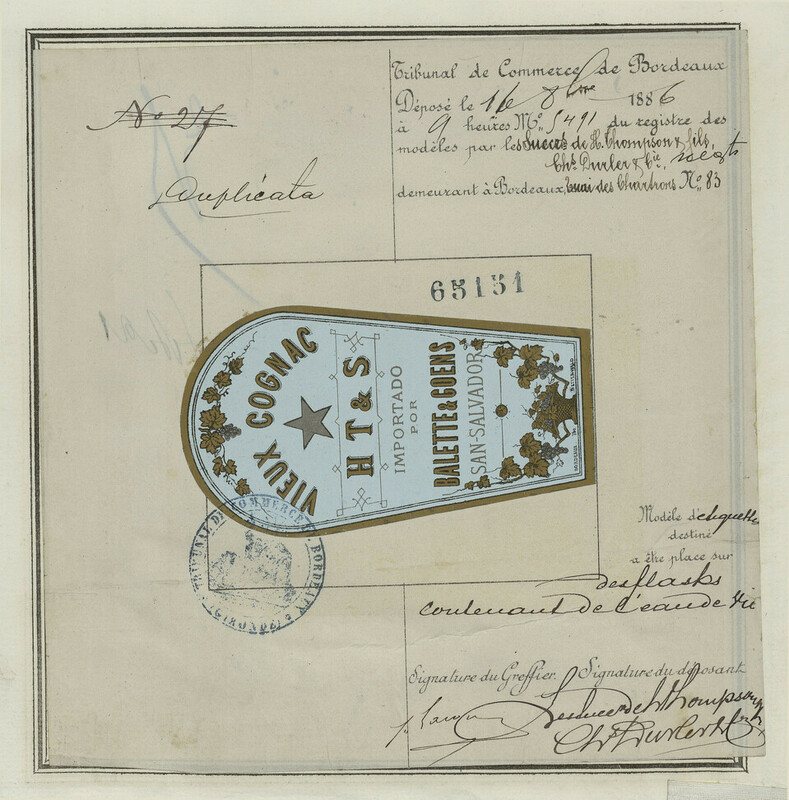 Nº 27
Duplicata
Tribunal de Commerce de Bordeaux
Déposé le 16 8bre 1886
à 9 heures Nº 5491 du registre des
modèles par les Succrs de H. Thompson & fils,
Chs Durler & Cie,
demeurant à Bordeaux, Quai des Chartrons Nº 83
65151
VIEUX COGNAC
H T & S
IMPORTADO
POR
BALETTE & GOENS
SAN-SALVADOR
TRIBUNAL DE COMMERCE DE BORDEAUX
(GIRONDE)
Modèle d'etiquette
destiné
a être place sur
des flasks
contenant de l'eau de vie
Signature du Greffier. Signature du déposant
Les succrs de H Thompson &
Chs Durler &